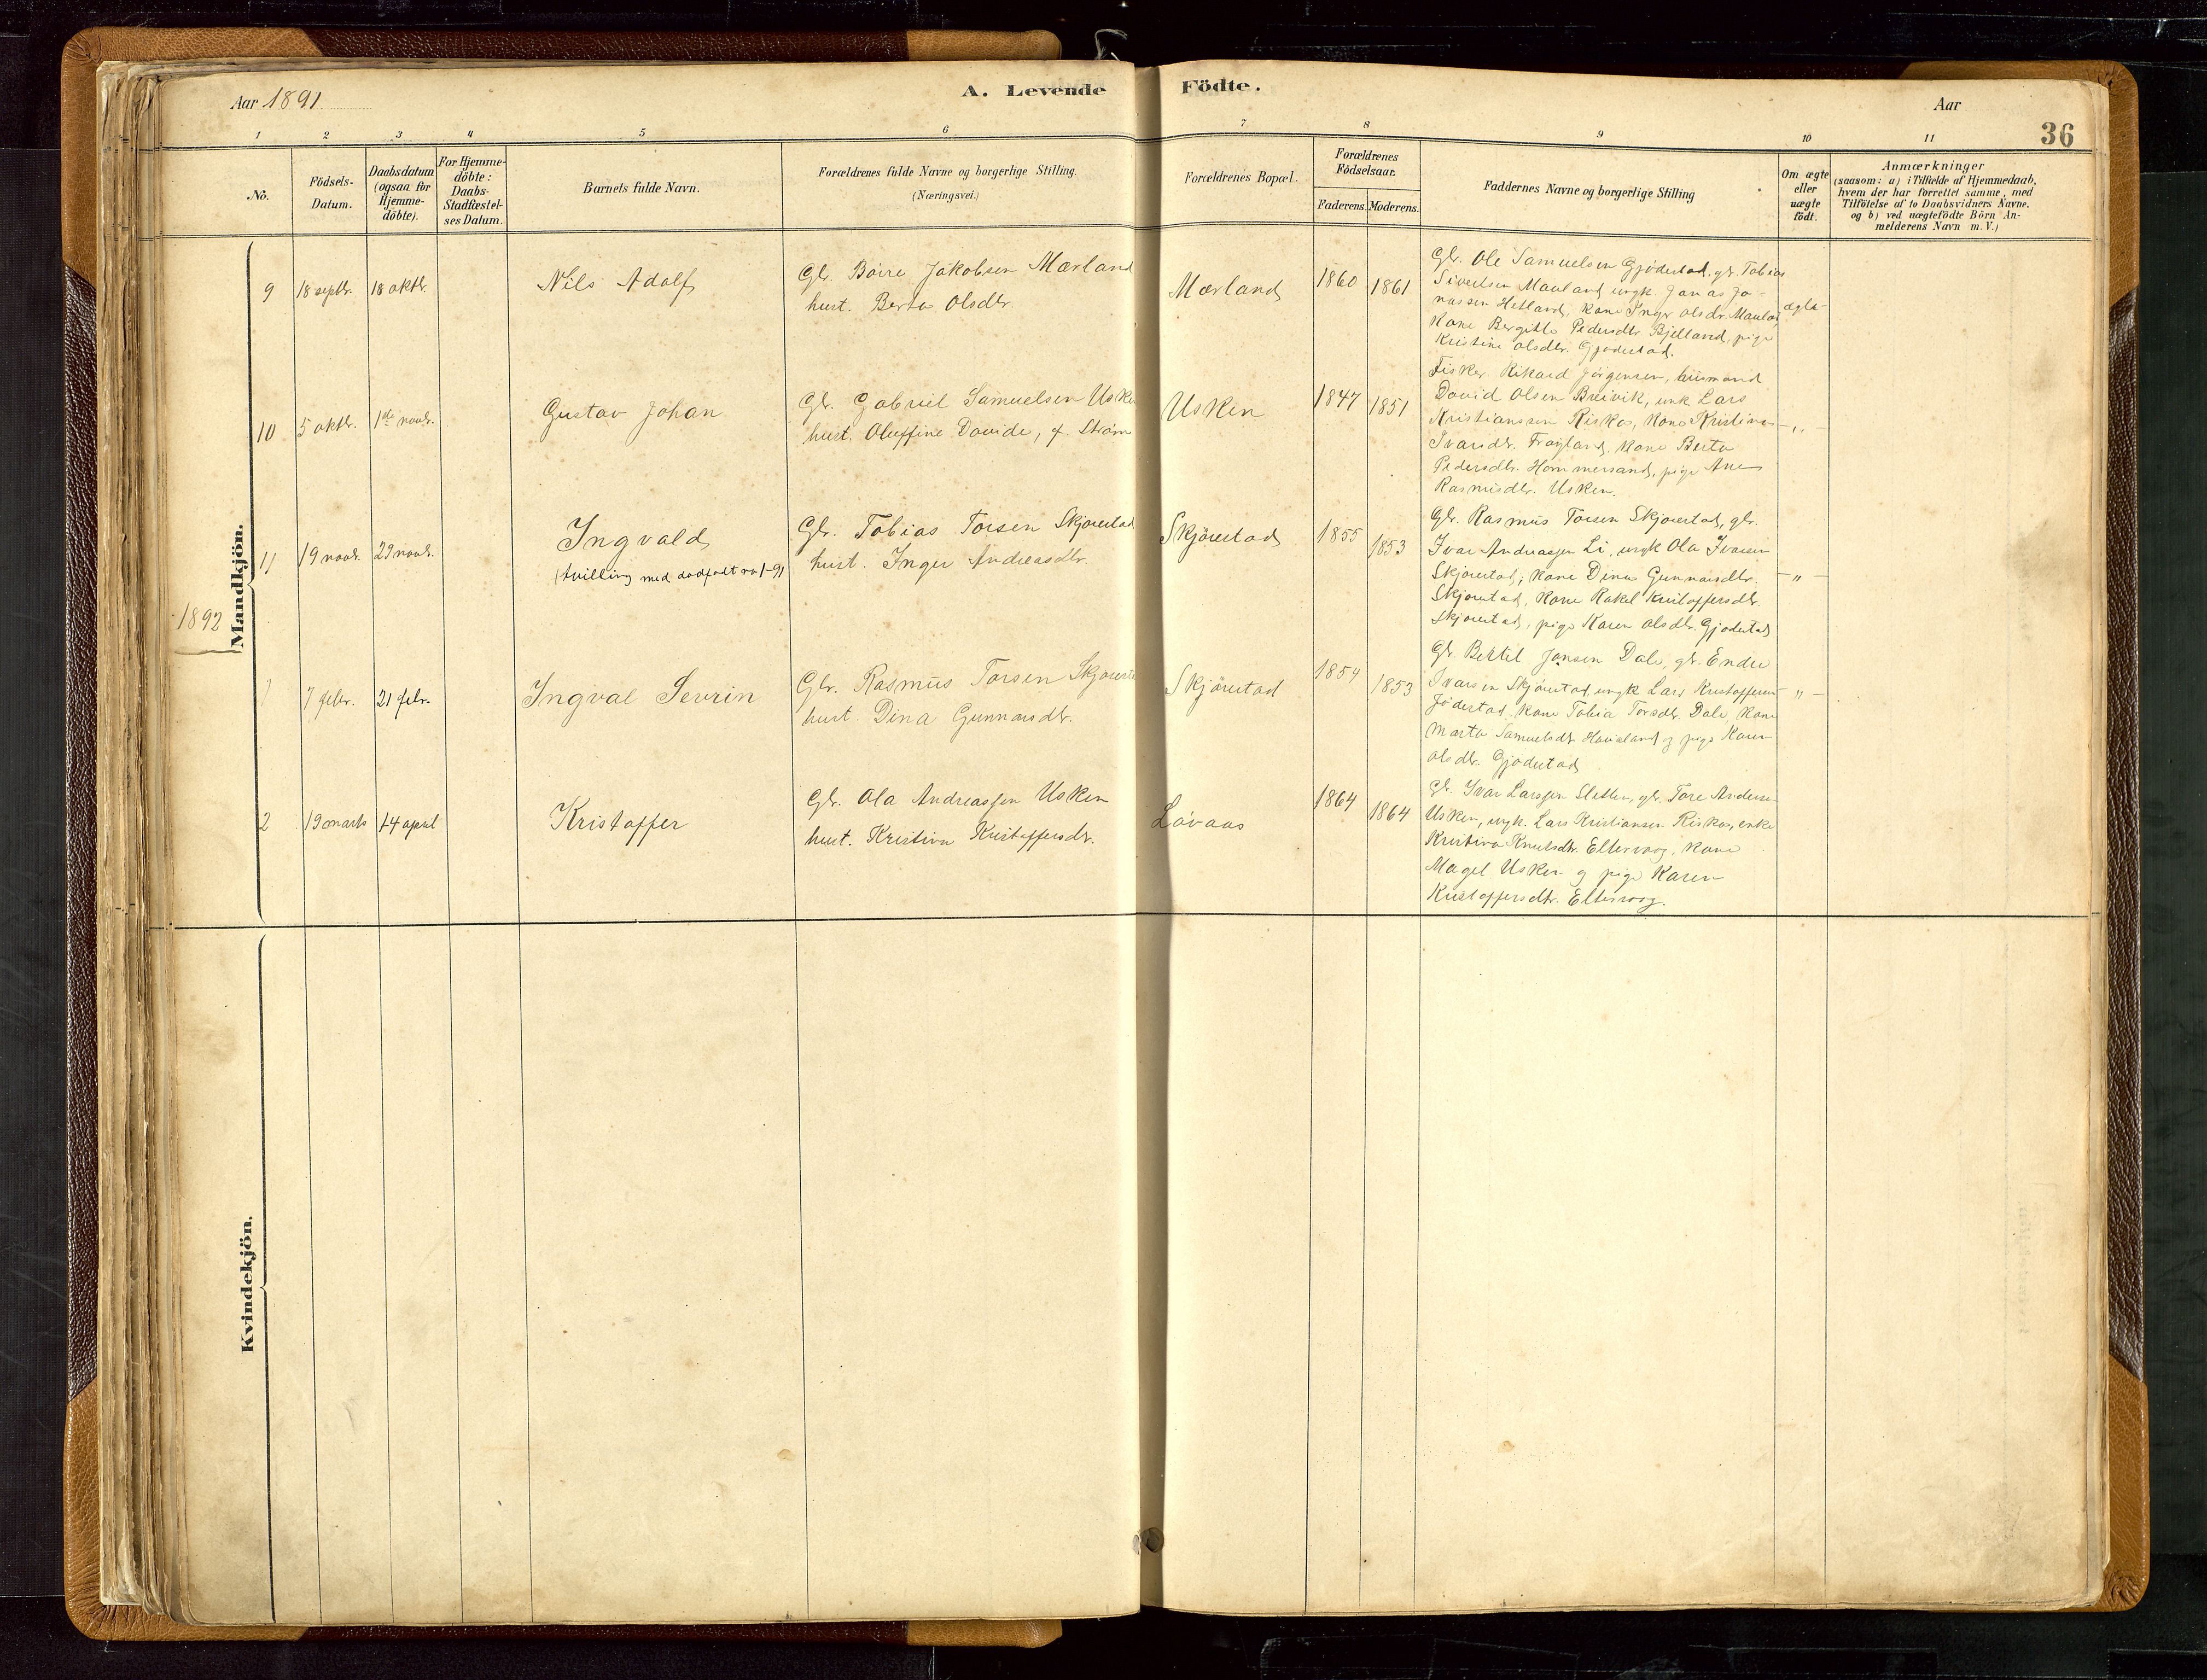 Aar 1891
A. Levende
Födte.
Aar
36
1 2 3 4 5 6 7 8 9 10 11
No.
Födsels-
Datum.
Daabsdatum
(ogsaa for
Hjemme-
döbte).
For Hjemme-
döbte:
Daabs-
Stadfæstel-
ses Datum.
Barnets fulde Navn.
Forældrenes fulde Navne og borgerlige Stilling.
(Næringsvei.)
Forældrenes Bopæl.
Forældrenes
Födselsaar.
Faderens. Moderens.
Faddernes Navne og borgerlige Stilling
Om ægte
eller
uægte
födt.
Anmærkninger
(saasom: a) i Tilfælde af Hjemmedaab,
hvem der har forrettet samme, med
Tilföielse af to Daabsvidners Navne.
og b) ved uægtefödte Börn An-
melderens Navn m. V.)
Mandkjön.
9
18 septbr.
18 oktbr.
Nils Adolf
Gbr. Böire Jakobsen Mærland
hust. Berta Olsdtr.
Mærland
1860
1861
Gbr. Ole Samuelsen Gjödestad, gbr. Tobias
Sivertsen Mauland ungk. Jonas Jo-
nassen Hetland, kone Inger Olsdtr. Mauland
kone Bergitte Pedersdtr. Bjelland, pige
Kristine Olsdtr. Gjödestad.
ægte
10
5 oktbr.
1ste novbr.
Gustav Johan
Gbr. Gabriel Samuelsen Usken
hust. Oluffine Davide, f. Ström
Usken
1847
1851
Fisker Rikard Jörgensen, husmand
David Olsen Breivik, unk Lars
Kristianssen Riska, kone Kristine
Ivarsdtr. Frøyland, kone Berta
Pedersdtr. Hommersand, pige Ane
Rasmusdtr. Usken.
- " -
11
19 novbr.
29 novbr.
Ingvald
(tvilling med dödfödt no 1-91
Gbr. Tobias Torsen Skjörestad
hust. Inger Andreasdtr.
Skjörestad
1855
1853
Gbr. Rasmus Torsen Skjörestad, gbr.
Ivar Andreassen Li, ungk Ola Ivarsen
Skjörestad, kone Dina Gunnarsdtr.
Skjörestad, kone Rakel Kristoffersdtr.
Skjörestad, pige Karen Olsdtr. Gjödestad
- " -
1892
1
7 febr.
21 febr.
Ingval Sevrin
Gbr. Rasmus Torsen Skjörestad
hust. Dina Gunnarsdtr.
Skjörestad
1854
1853
Gbr. Bertel Jonsen Dale, gbr. Endre
Ivarsen Skjörestad, ungk Lars Kristoffersen
Jödestad, kone Tobia Torsdtr. Dale, kone
Marta Samuelsdtr. og pige Karen
Olsdtr. Gjödestad
" -
2
19 marts
14 april
Kristoffer
Gbr. Ola Andreassen Usken
hust. Kristine Kristoffersdtr.
Lövaas
1864
1864
Gbr. Ivar Larssen Sletten, gbr. Tore Andersen
Usken, ungk. Lars Kristiansen Riska, enke
Kristina Knutsdtr. Eltervaag, kone
Magel Usken og pige Karen
Kristoffersdtr. Eltervaag.
Kvindekjön.